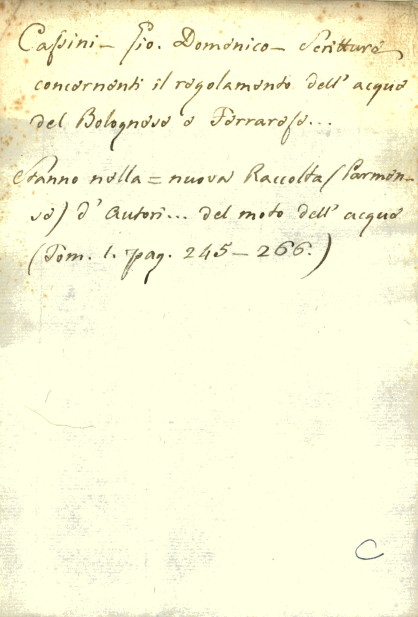 Caſsini - Gio. Domenico - Scritture
concernenti il regolamento dell' acque
del Bolognese e Ferrarese...
Stanno nella = nuova Raccolta (Parmen-
se) d' Autori... del moto dell' acque
(Tom. 1. pag. 245 - 266.)
C